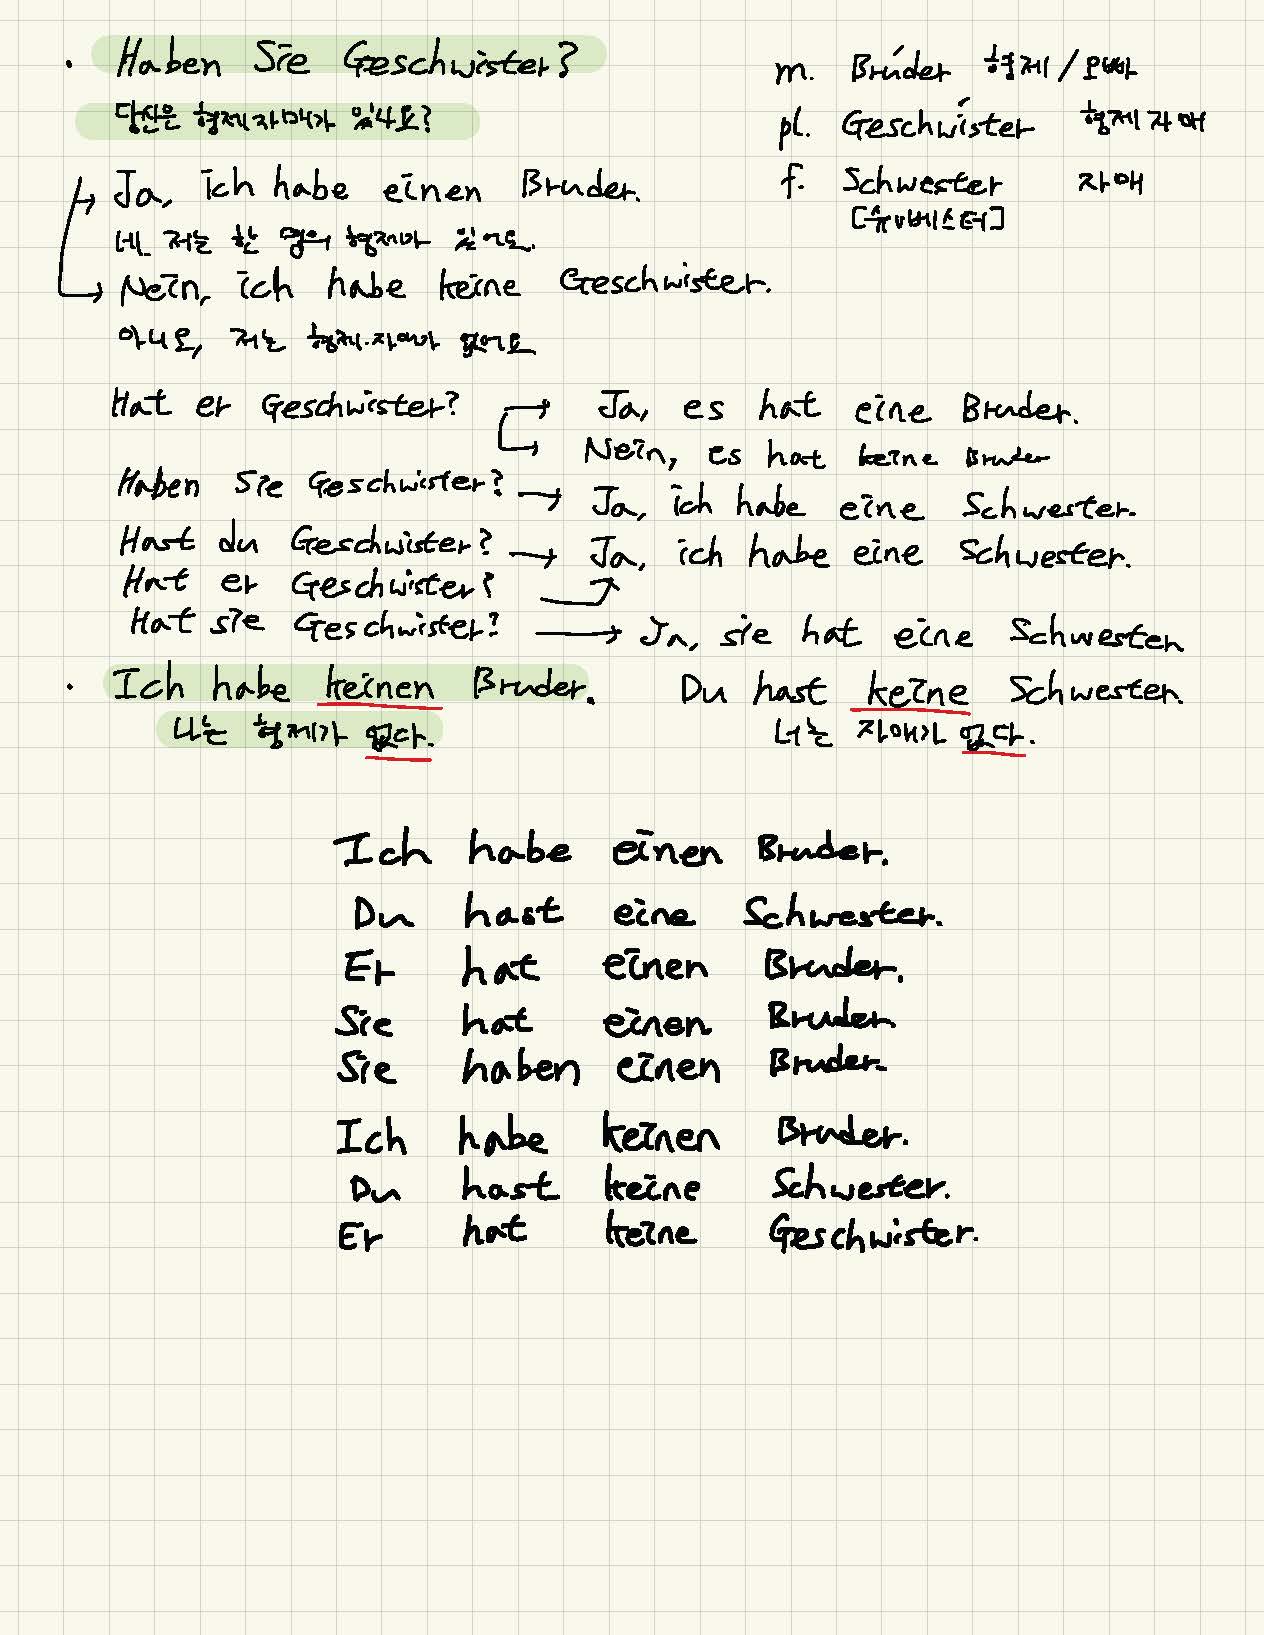 · Haben Sie Geschwister?
당신은 형제자매가 있나요?
m. Brúder 형제/오빠
pl. Geschwíster 형제자매
f. Schwester 자매
[슈v베스터]
Ja, ich habe einen Bruder.
네 저는 한 명의 형제가 있어요.
Nein, ich habe keine Geschwister.
아니오, 저는 형제·자매가 없어요
Hat er Geschwister? → Ja, es hat eine Bruder.
→ Nein, es hat keine Bruder
Haben Sie Geschwister? → Ja, ich habe eine Schwester.
Hast du Geschwister? → Ja, ich habe eine Schwester.
Hat er Geschwister?
Hat sie Geschwister? → Ja, sie hat eine Schwester
· Ich habe keinen Bruder. Du hast keine Schwester.
나는 형제가 없다. 너는 자매가 없다.
Ich habe einen Bruder.
Du hast eine Schwester.
Er hat einen Bruder.
Sie hat einen Bruder
Sie haben einen Bruder.
Ich habe keinen Bruder.
Du hast keine Schwester.
Er hat keine Geschwister.